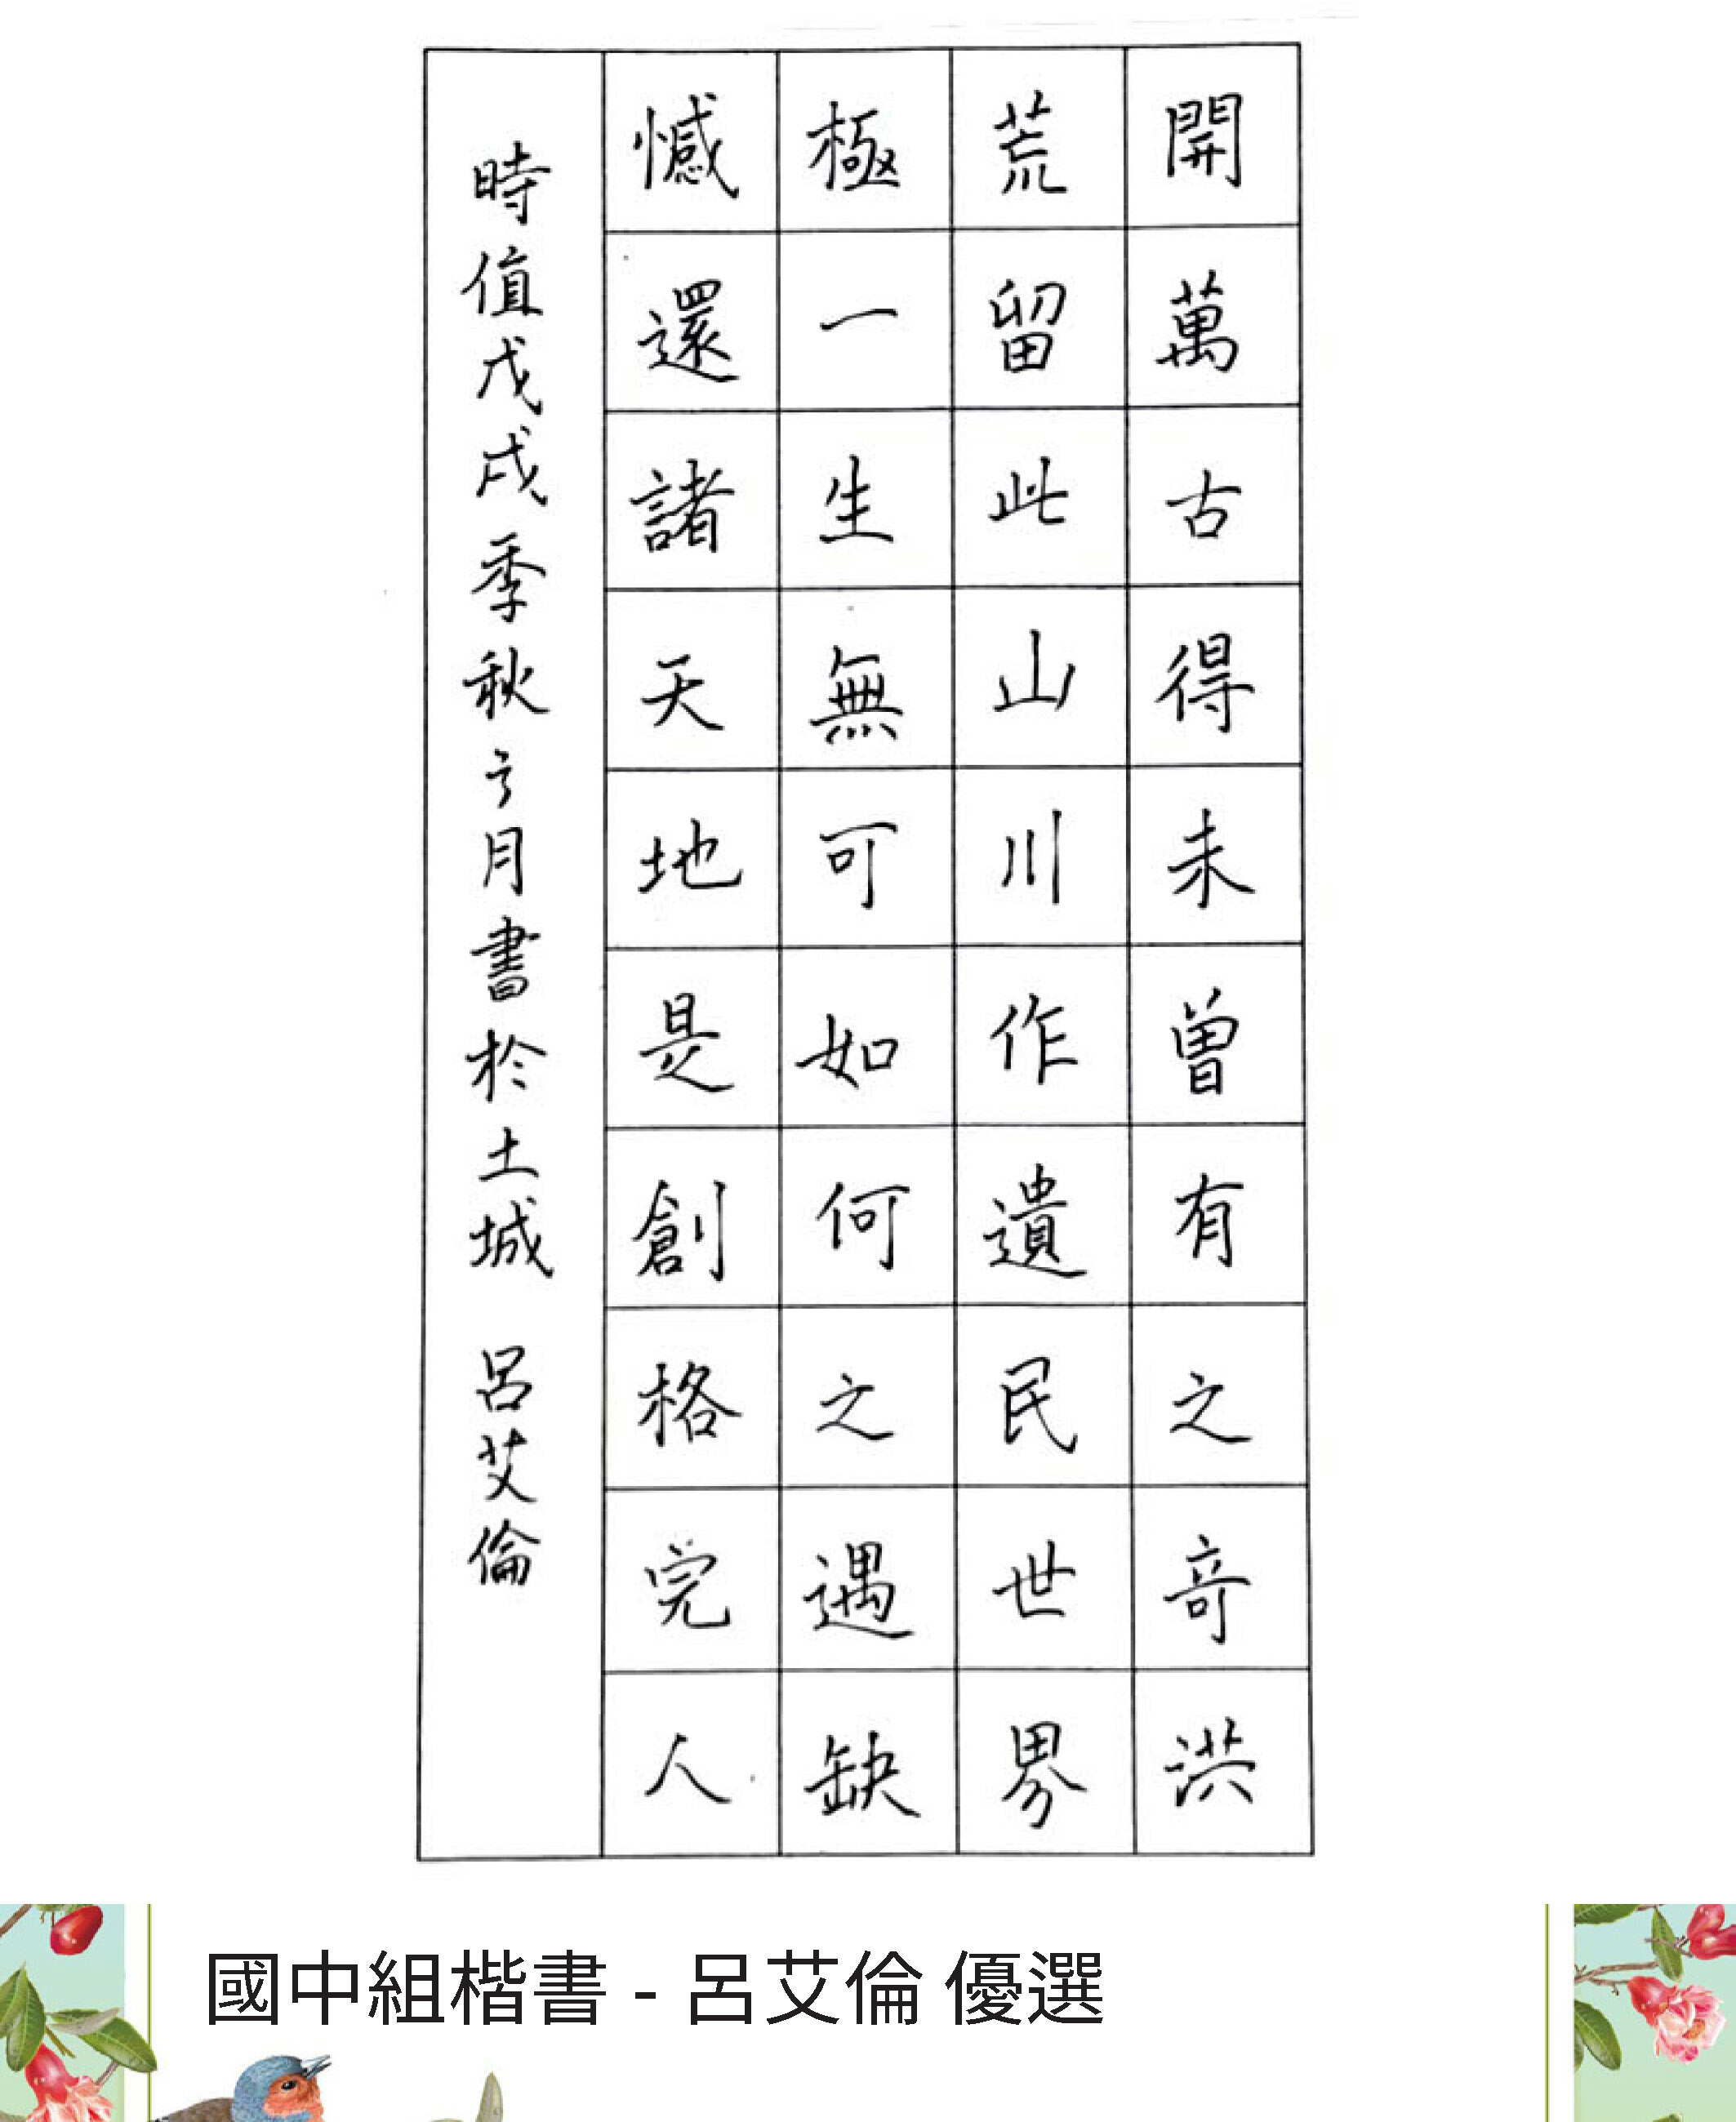 開萬古得未曾有之奇洪
荒留此山川作遺民世界
極一生無可如何之遇缺
憾還諸天地是創格完人
時值戊戌季秋之月書於土城 呂艾倫
國中組楷書 - 呂艾倫 優選